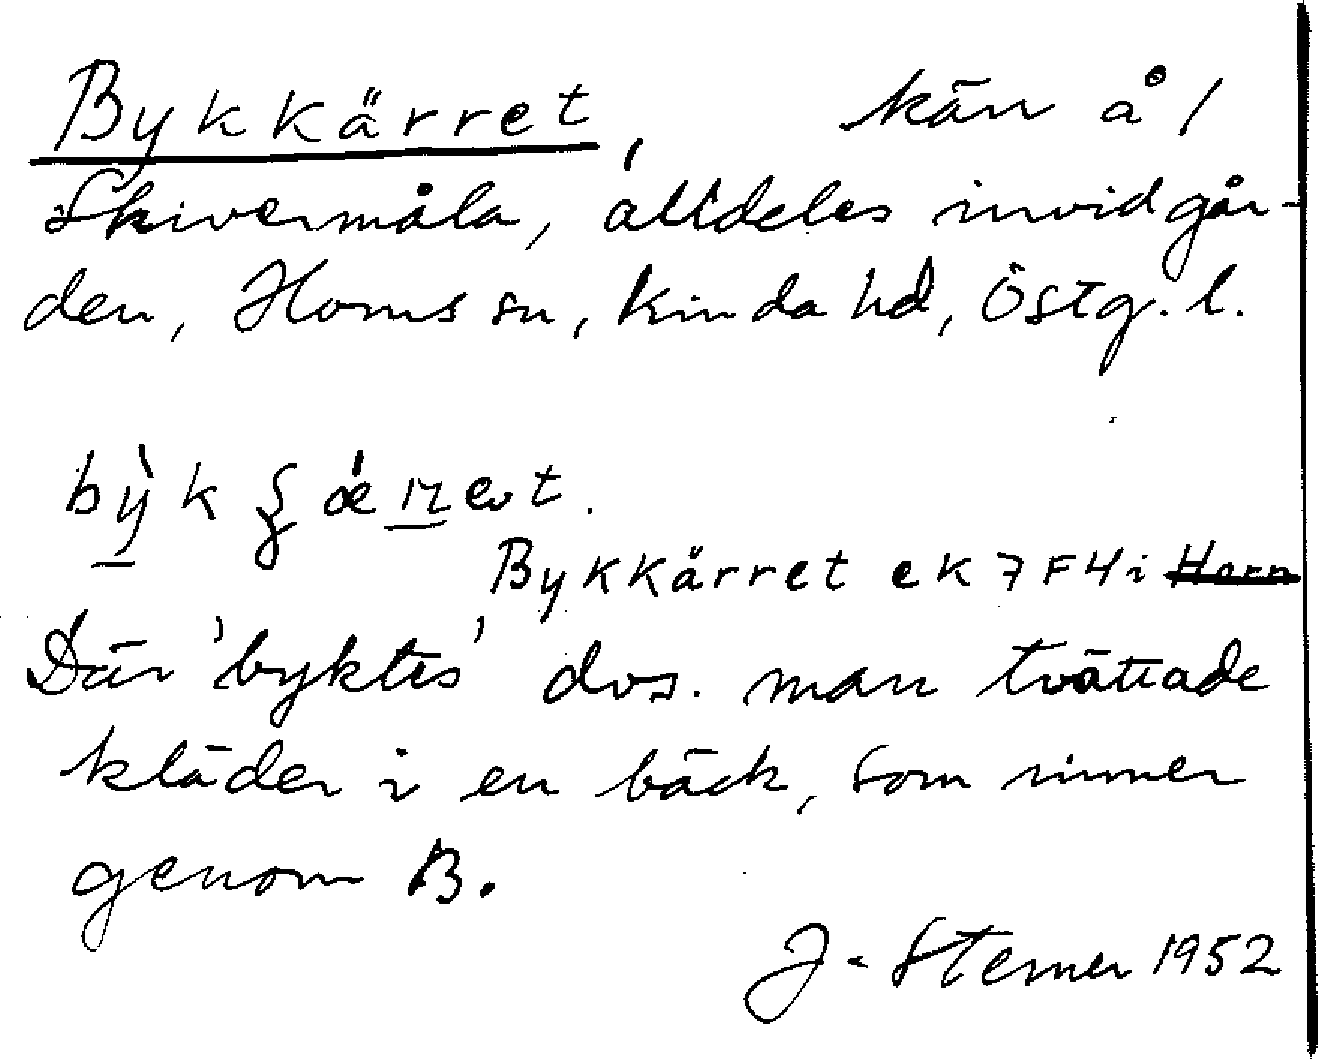 Bykkärret, kärr å /
Skivermåla, alldeles invid går-
den, Horns sn, Kinda hd, Östg. l.
Bykkärret ek 7 F 4 i Horn
Där 'byktes' dvs. man tvättade
kläder i en bäck, som rinner
genom B.
J. Sterner 1952